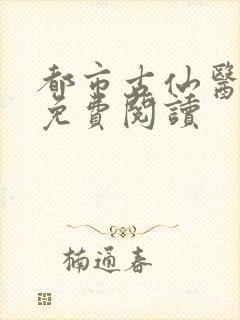 都市古仙醫
免費閱讀
楠通春